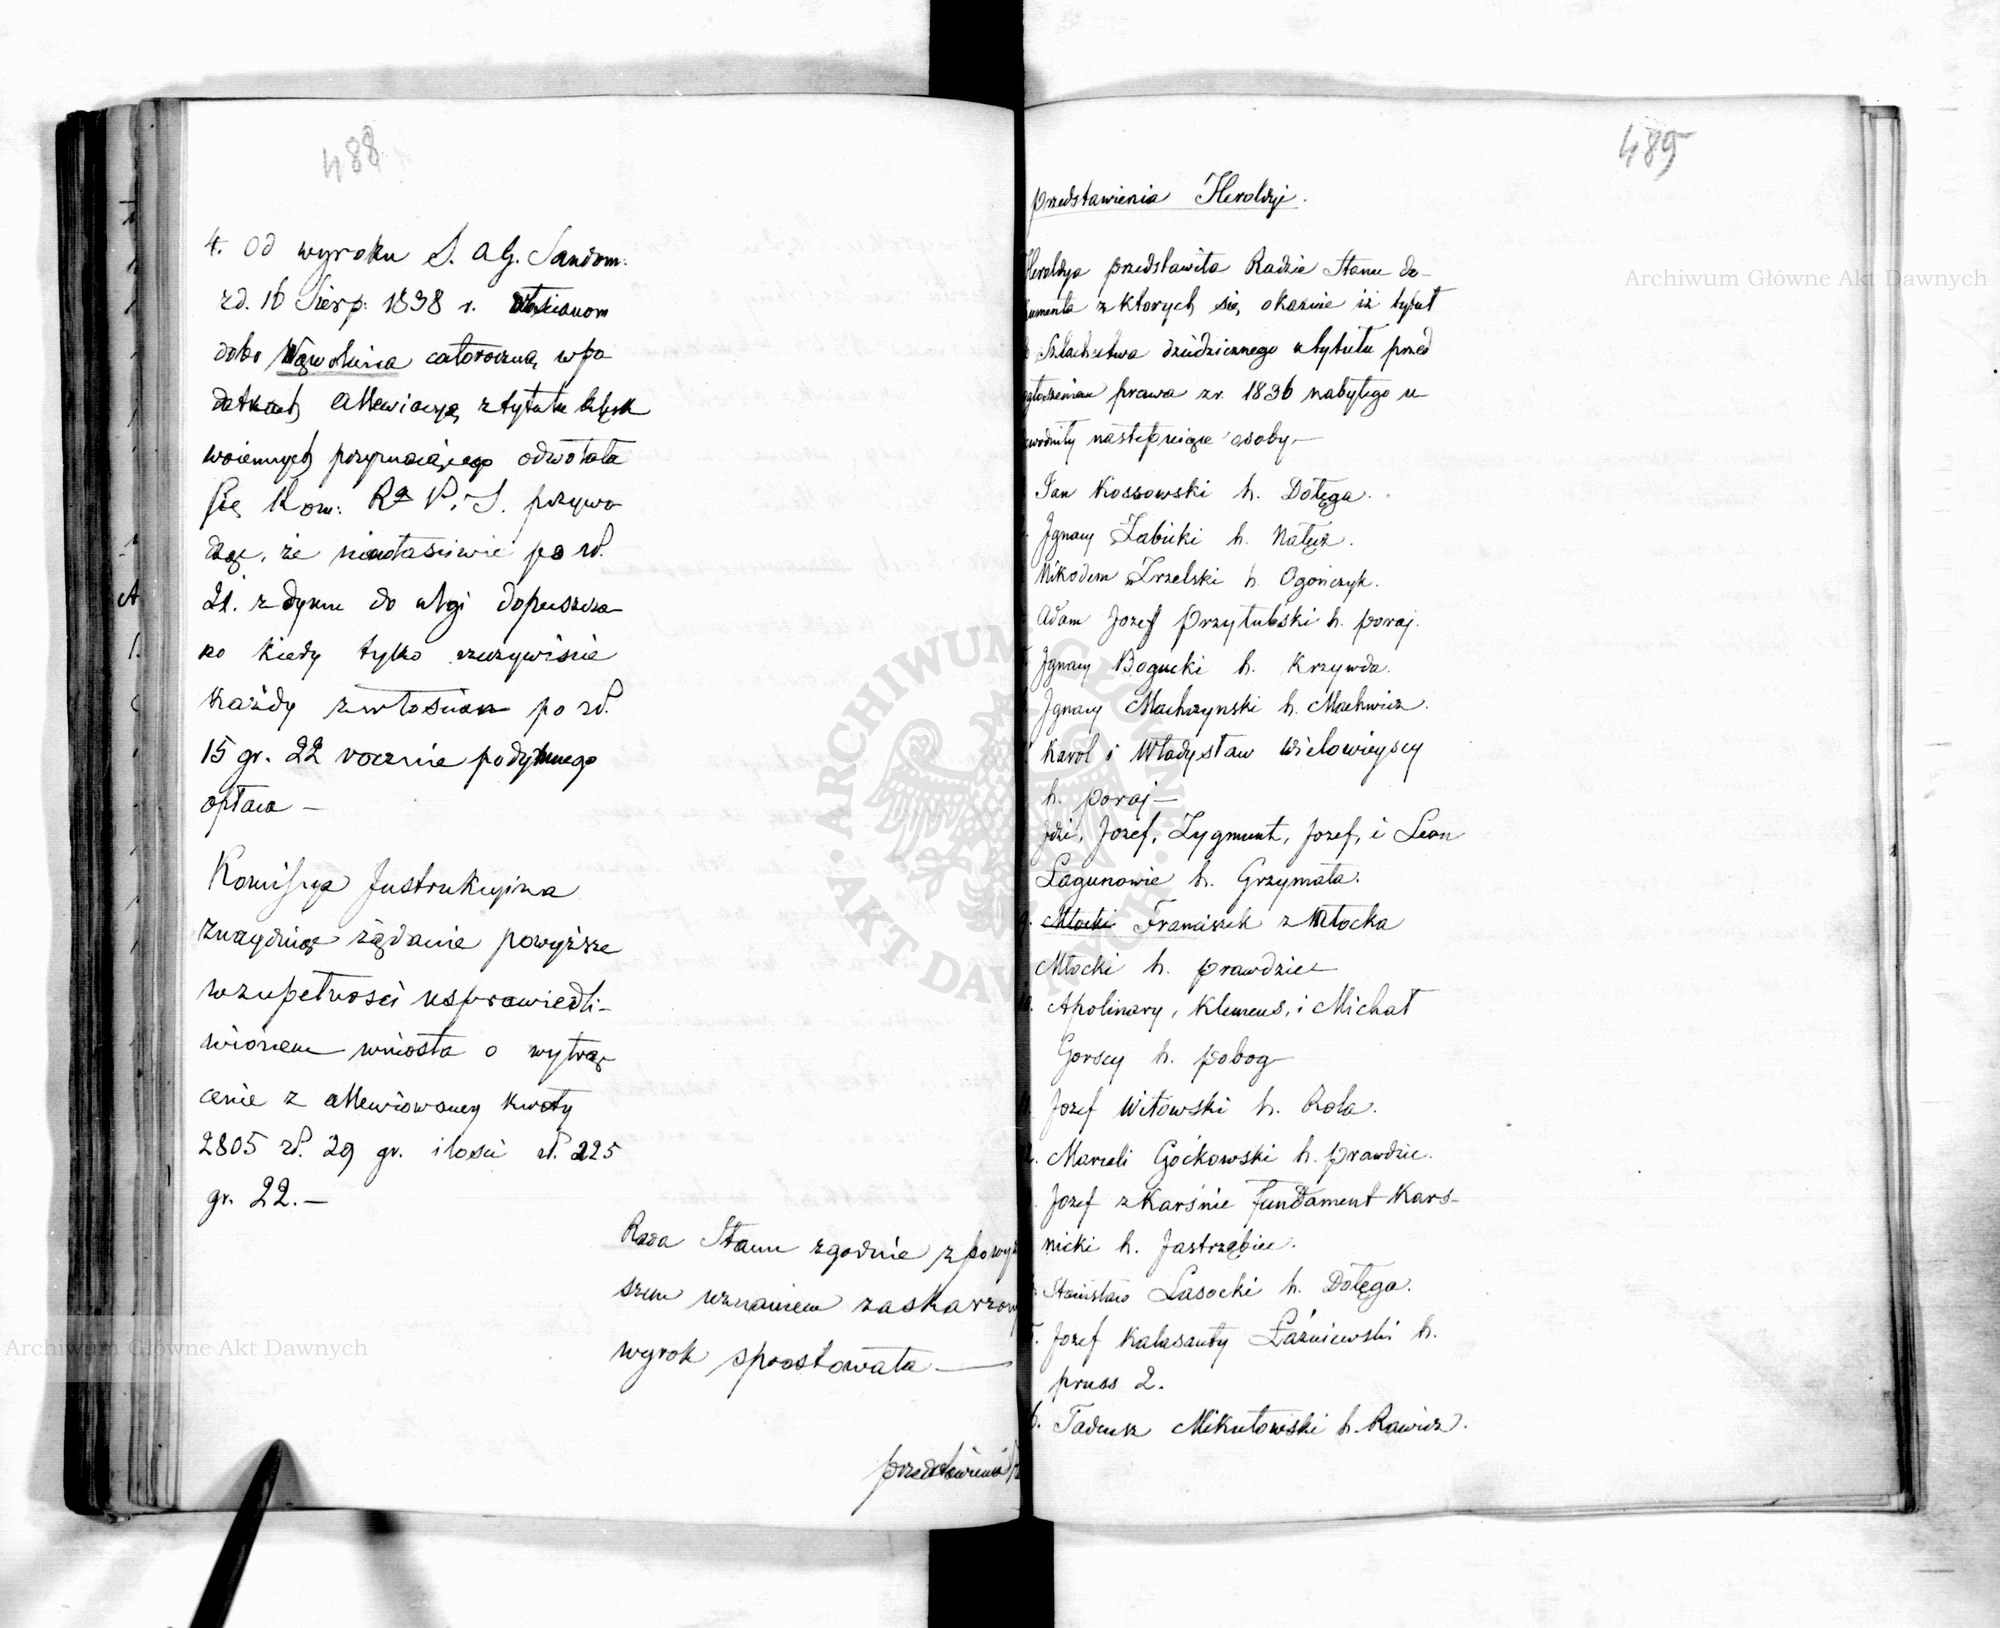 488
4. Od wyroku S. A G. Sandom.
zd. 16 Sierp: 1838 r. Włościanom
dóbr Wąwolnica całoroczną w po
datkach allewiacyą z tytułu klęsk
woiennych przyznaiącego odwołała
się Kom: Rz P. i S. przywo
dząc, że niewłaściwie po zł.
21. z dymu do ulgi dopuszcza
no kiedy tylko rzeczywiście
każdy z włościan po zł.
15 gr. 22 rocznie podymnego
opłaca —
Komissya Instrukcyina
znayduiąc żądanie powyższe
w zupełności usprawiedli-
wionem wniosła o wytrą
cenie z allewiowaney kwoty
2805 zł. 29 gr. ilości zł. 225
gr. 22. —
Rada Stanu zgodnie z powyż
szem uznaniem zaskarżon
wyrok sprostowała —
przedstawienia
Archiwum Główne Akt Dawnych
489
przedstawienia Heroldyi.
Heroldya przedstawiła Radzie Stanu do-
kumenta z których się okazuie iż tytuł
Szlachectwa dziedzicznego z tytułu przed
ogłoszeniem prawa z r. 1836 nabytego u-
dowodniły następuiące osoby —
Jan Kossowski h. Dołęga.
Ignacy Żabicki h. Nałęcz.
Nikodem Zrzelski h. Ogończyk.
Adam Jozef Przyłubski h. Poraj.
Ignacy Bogucki h. Krzywda.
Ignacy Machczynski h. Machwicz.
Karol i Władysław Wielowieyscy
h. Poraj —
Idzi, Jozef, Zygmunt, Jozef, i Leon
Łagunowie h. Grzymała.
9. Młocki Franciszek z Młocka
Młocki h. Prawdzic
10. Apolinary, Klemens, i Michał
Gorscy h. Pobog
Jozef Witowski h. Rola.
2. Marceli Goćkowski h. Prawdzic.
Jozef z Karśnic Fundament Kars-
nicki h. Jastrzębiec.
Stanisław Lasocki h. Dołęga.
5. Jozef Kalasanty Łaźniewski h.
Pruss 2.
6. Tadeusz Mikułowski h. Rawicz.
Archiwum Główne Akt Dawnych
ARCHIWUM GŁÓWNE AKT DAWNYCH